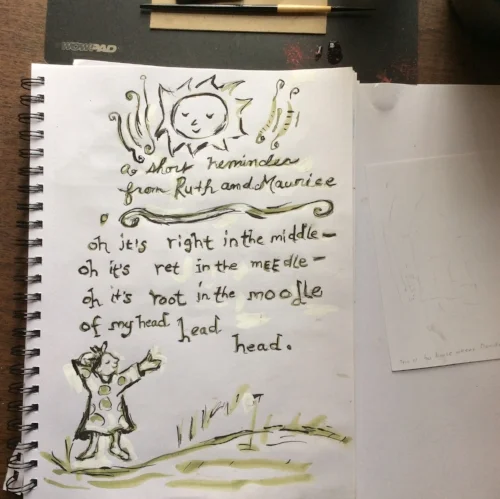 WOWPAD
a short reminder
from Ruth and Maurice
oh it's right in the middle-
oh it's ret in the mEEdle-
oh it's root in the moodle
of my head head
head.